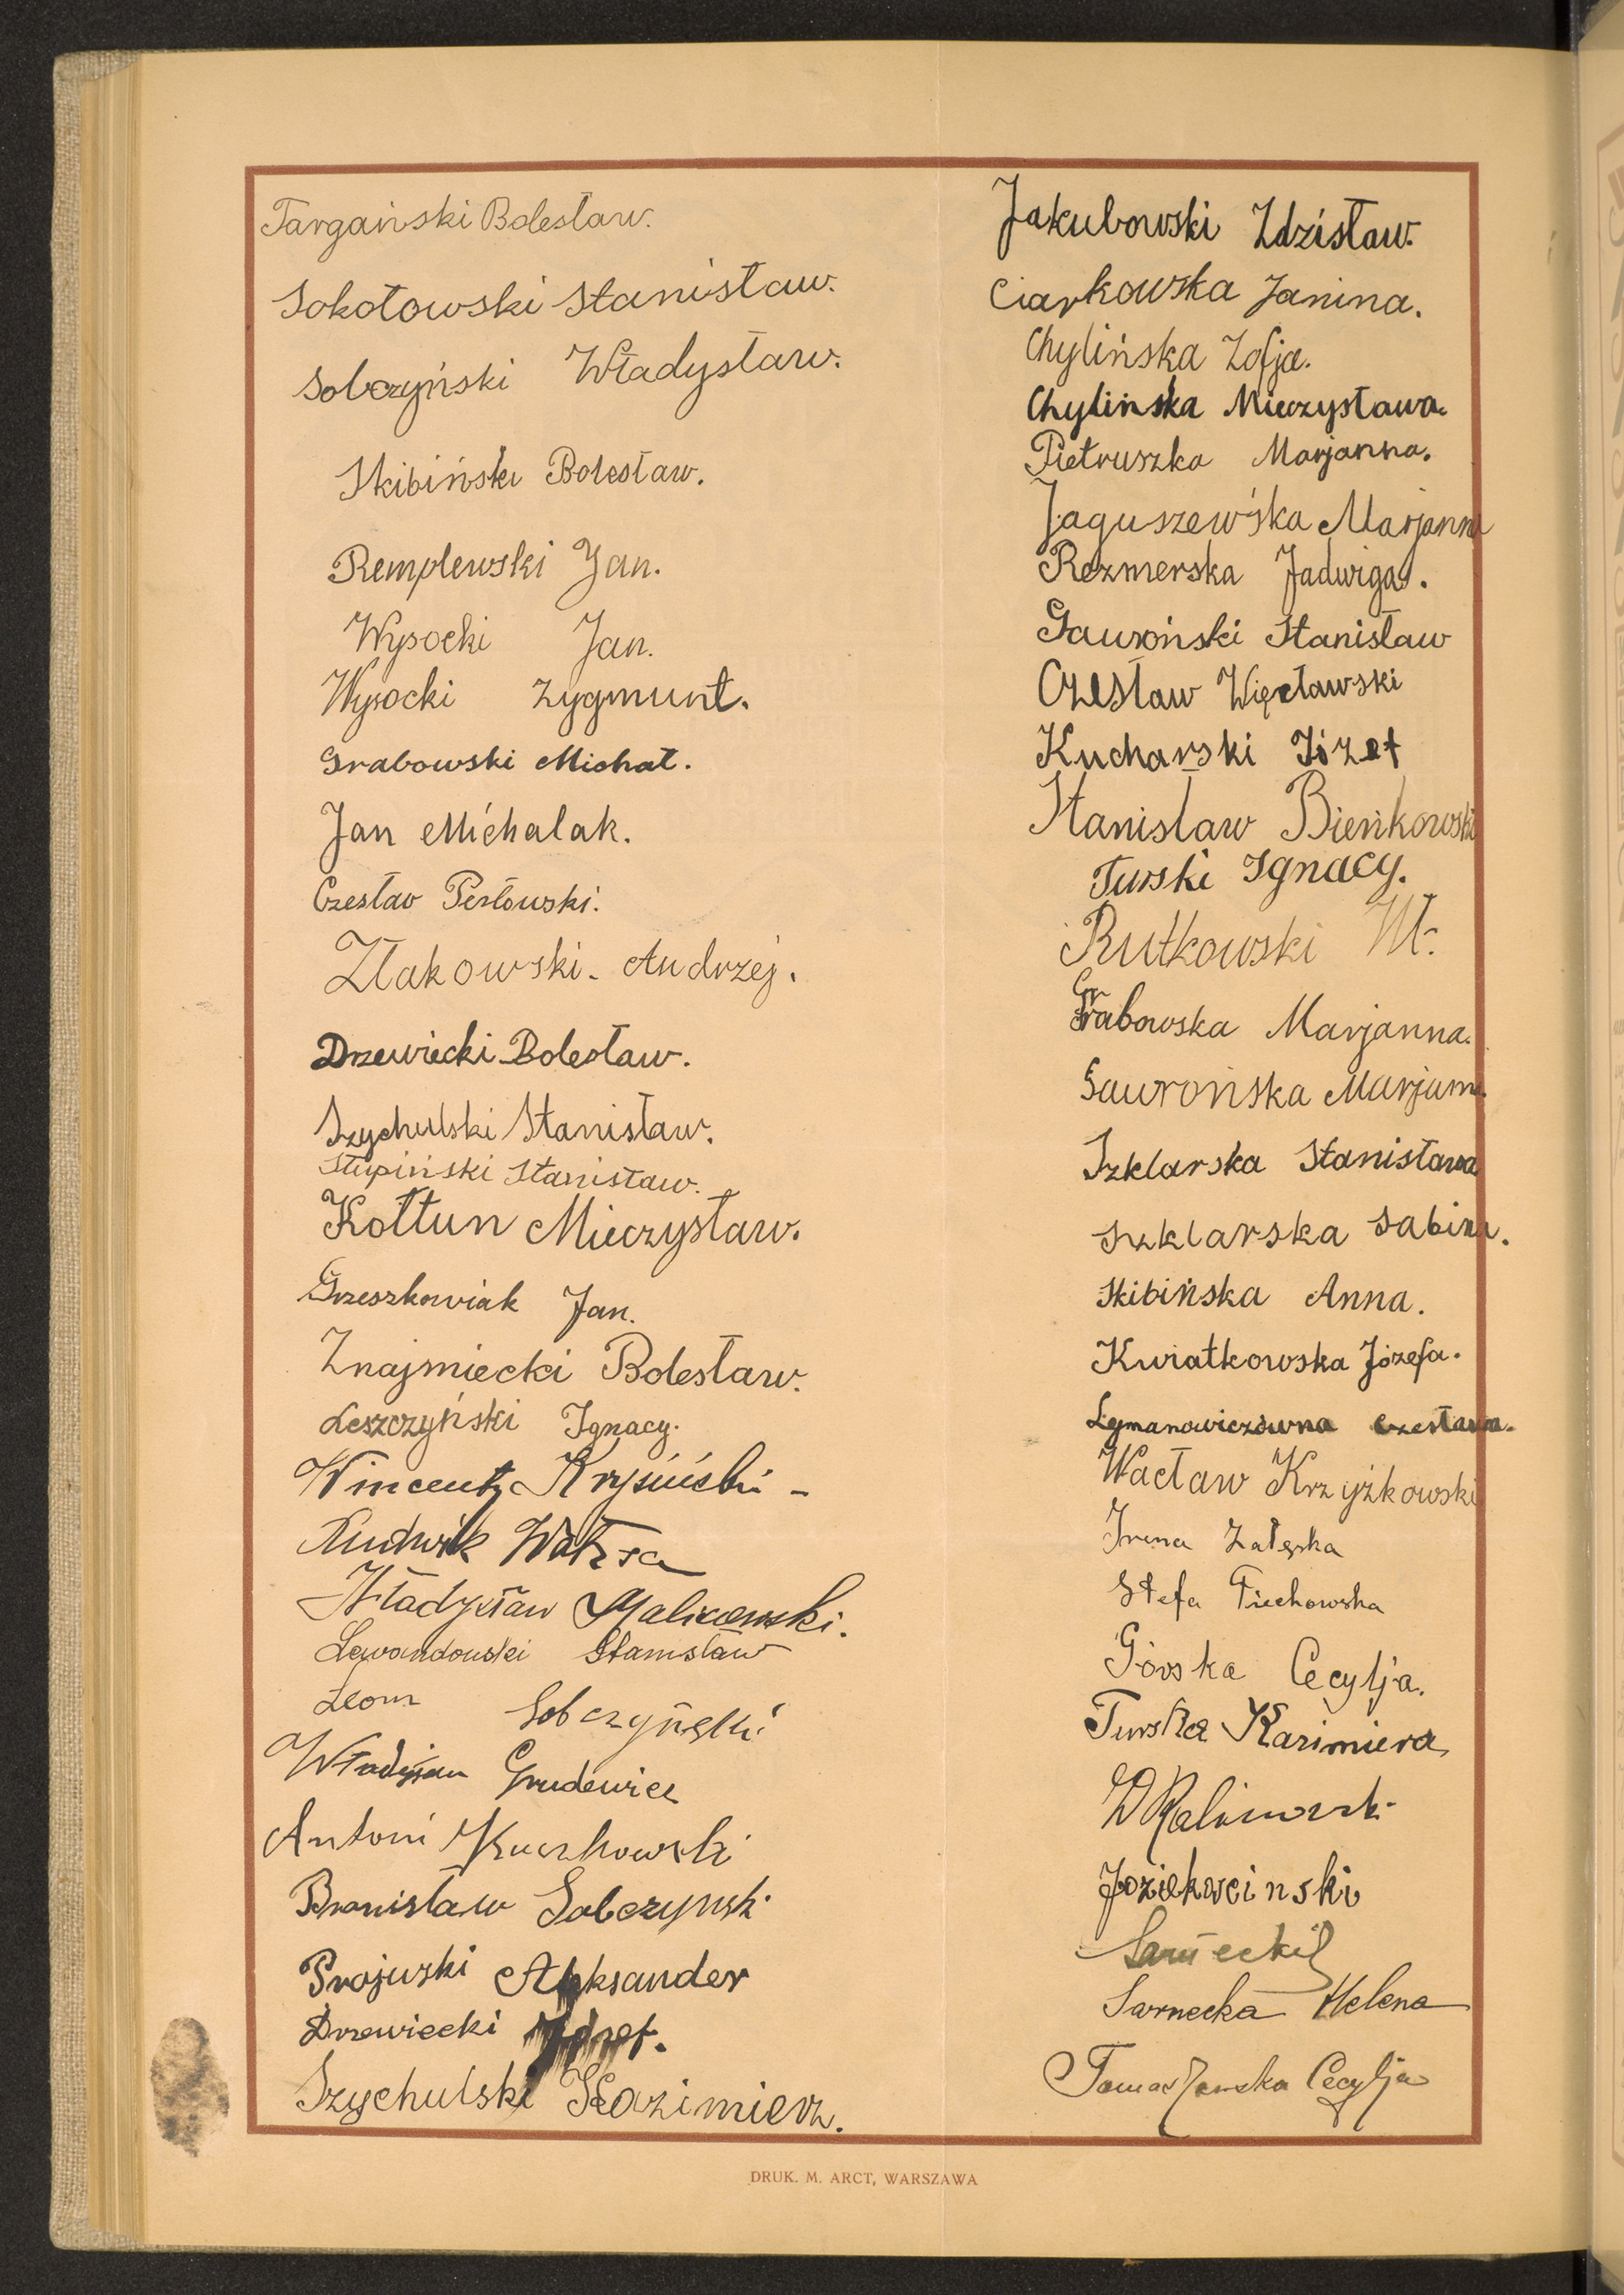 Targański Bolesław.
Sokołowski Stanisław.
Sobczyński Władysław.
Skibiński Bolesław.
Remplewski Jan.
Wysocki Jan.
Wysocki Zygmunt.
Grabowski Michał.
Jan Michalak.
Czesław Perłowski.
Złakowski. Andrzej.
Drzewiecki Bolesław.
Szychulski Stanisław.
Słupiński Stanisław.
Kołtun Mieczysław.
Grzeszkowiak Jan.
Znajmiecki Bolesław.
Leszczyński Ignacy.
Wincenty Krysiński -
Ludwik
Władysław Malinowski.
Lewandowski Stanisław
Leon Sobczyński
Władysław Grudewicz
Antoni Kuczkowski
Bronisław Sobczyński
Prajuski Aleksander
Drzewiecki Józef.
Szychulski Kazimierz.
Jakubowski Zdzisław.
Ciarkowska Janina.
Chylińska Zofja.
Chylinska Mieczysława.
Pietruszka Marjanna.
Jaguszewśka Marjanna
Rezmerska Jadwiga.
Gawroński Stanisław
Czesław Więcławski
Kucharski Józef
Stanisław Bieńkowski
Turski Ignacy.
Rutkowski Wł.
Grabowska Marjanna.
Gawrońska Marjanna.
Szklarska Stanisława
Szklarska Sabina.
Skibińska Anna.
Kwiatkowska Józefa.
Lymanowiczówna Czesława.
Wacław Krzyżkowski
Irena Załęska
Stefa Piechowska
Górska Cecylja.
Turska Kazimiera
Sarnecki
Sarnecka Helena
Tomaszewska Cecylja
DRUK. M. ARCT, WARSZAWA